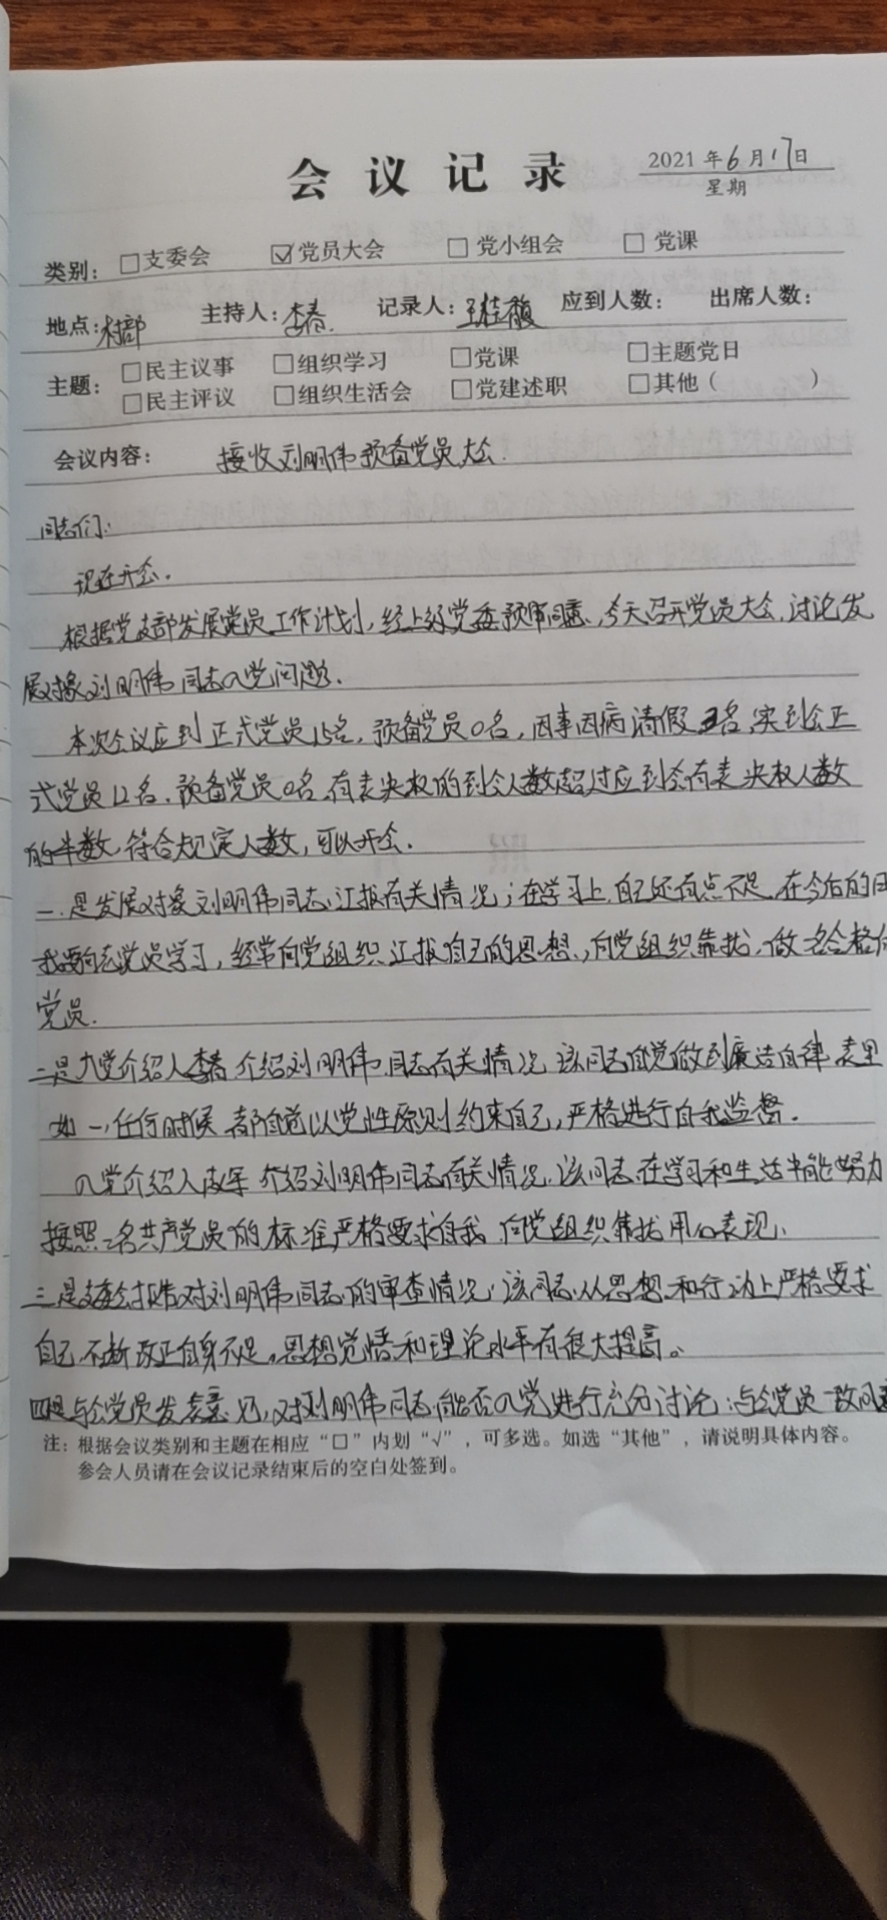 会议记录
2021年6月17日
星期
类别：□支委会 ☑党员大会 □党小组会 □党课
地点：村部 主持人：李春 记录人：王桂馥 应到人数： 出席人数：
主题：□民主议事 □组织学习 □党课 □主题党日
□民主评议 □组织生活会 □党建述职 □其他（ ）
会议内容： 接收刘明伟预备党员大会.
同志们：
现在开会.
根据党支部发展党员工作计划，经上级党委预审同意、今天召开党员大会，讨论发
展对象刘明伟同志入党问题.
本次会议应到正式党员15名，预备党员0名，因事因病请假3名，实到会正
式党员12名，预备党员0名，有表决权的到会人数超过应到会有表决权人数
的半数，符合规定人数，可以开会.
一.是发展对象刘明伟同志汇报有关情况；在学习上，自己还有点不足，在今后的日
我要向老党员学习，经常向党组织汇报自己的思想，向党组织靠拢，做一名合格的
党员.
二是入党介绍人李春介绍刘明伟同志有关情况，该同志自觉做到廉洁自律，表里
如一，任何时候都自觉以党性原则约束自己，严格进行自我监督.
入党介绍人 介绍刘明伟同志有关情况，该同志在学习和生活中能努力
按照一名共产党员的标准严格要求自我，向党组织靠拢 表现、
三是支委会报告对刘明伟同志的审查情况，该同志从思想和行动上严格要求
自己，不断改正自身不足，思想觉悟和理论水平有很大提高。
四是与会党员发表意见，对刘明伟同志能否入党进行充分讨论；与会党员一致同意
注：根据会议类别和主题在相应“□”内划“√”，可多选。如选“其他”，请说明具体内容。
参会人员请在会议记录结束后的空白处签到。